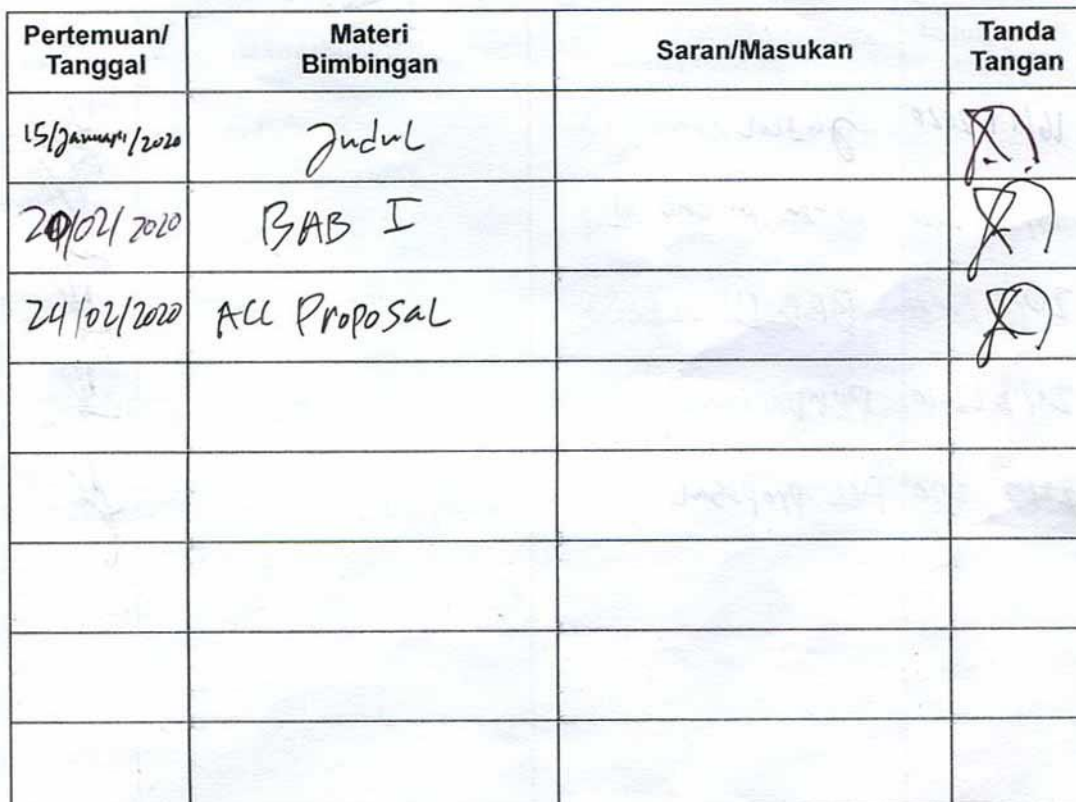 Pertemuan/
Tanggal
Materi
Bimbingan
Saran/Masukan
Tanda
Tangan
15/Januari/2020
Judul
20/02/2020
BAB I
24/02/2020
ACC Proposal